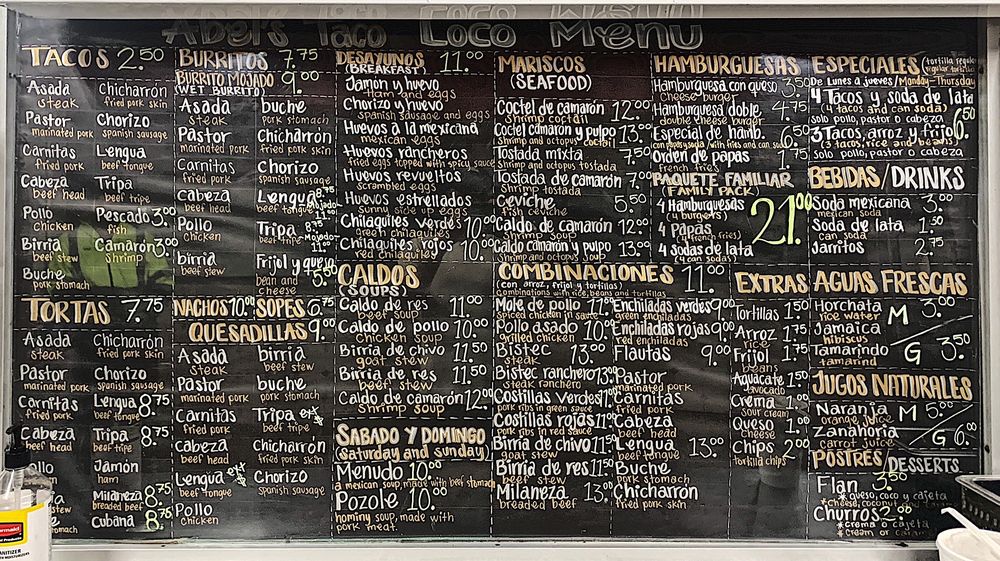 Abel's Taco Loco Menu
TACOS 2.50
Asada
steak
Pastor
marinated pork
Carnitas
fried pork
Cabeza
beef head
Pollo
chicken
Birria
beef stew
Buche
pork stomach
Chicharrón
fried pork skin
Chorizo
spanish sausage
Lengua
beef tongue
Tripa
beef tripe
Pescado 3.00
fish
Camarón 3.00
shrimp
TORTAS 7.75
Asada
steak
Pastor
marinated pork
Carnitas
fried pork
Cabeza
beef head
Chicharrón
fried pork skin
Chorizo
spanish sausage
Lengua 8.75
beef tongue
Tripa 8.75
beef tripe
Jamón
ham
Milaneza 8.75
breaded beef
Cubana 8.75
BURRITOS 7.75
BURRITO MOJADO 9.00
(WET BURRITO)
Asada
steak
Pastor
marinated pork
Carnitas
fried pork
Cabeza
beef head
Pollo
chicken
birria
beef stew
buche
pork stomach
Chicharrón
fried pork skin
Chorizo
spanish sausage
Lengua 8.75
beef tongue
Tripa 8.75
beef tripe
Frijol y queso 5.50
bean and
cheese
NACHOS 10.00 SOPES 6.75
QUESADILLAS 9.00
Asada
steak
Pastor
marinated pork
Carnitas
fried pork
Cabeza
beef head
Lengua ext
beef tongue
Pollo
chicken
birria
beef stew
buche
pork stomach
Tripa ext
beef tripe
Chicharrón
fried pork skin
Chorizo
spanish sausage
DESAYUNOS 11.00
(BREAKFAST)
Jamon y huevo
Ham and eggs
Chorizo y huevo
spanish sausage and eggs
Huevos a la mexicana
mexican eggs
Huevos rancheros
fried eggs topped with spicy sauce
Huevos revueltos
scrambled eggs
Huevos estrellados
sunny side up eggs
Chilaquiles verdes 10.00
green chilaquiles
Chilaquiles rojos 10.00
red chilaquiles
CALDOS
(SOUPS)
Caldo de res 11.00
beef soup
Caldo de pollo 10.00
chicken soup
Birria de chivo 11.50
goat stew
Birria de res 11.50
beef stew
Caldo de camarón 12.00
shrimp soup
SABADO Y DOMINGO
(saturday and sunday)
Menudo 10.00
a mexican soup, made with beef stomach
Pozole 10.00
hominy soup, made with
pork meat
MARISCOS
(SEAFOOD)
Coctel de camarón 12.00
shrimp coctail
Coctel camarón y pulpo 13.00
shrimp and octopus coctail
Tostada mixta 7.50
shrimp and octopus tostada
Tostada de camarón 7.00
shrimp tostada
Ceviche 5.50
fish ceviche
Caldo de camarón 12.00
shrimp soup
Caldo camarón y pulpo 13.00
shrimp and octopus soup
COMBINACIONES 11.00
(con arroz, frijol y tortillas)
combinations with rice, beans and tortillas
Mole de pollo 11.00
spiced chicken in sauce
Pollo asado 10.00
grilled chicken
Bistec 13.00
steak
Bistec ranchero 13.00
steak ranchero
Costillas Verdes 11.50
pork ribs in green sauce
Costillas rojas 11.50
pork ribs in red sauce
Birria de chivo 11.50
goat stew
Birria de res 11.50
beef stew
Milaneza 13.00
breaded beef
Enchiladas verdes 9.00
green enchiladas
Enchiladas rojas 9.00
red enchiladas
Flautas 9.00
Pastor
marinated pork
Carnitas
fried pork
Cabeza
beef head
Lengua 13.00
beef tongue
Buche
pork stomach
Chicharrón
fried pork skin
HAMBURGUESAS
Hamburguesa con queso 3.50
Cheese burger
Hamburguesa doble 4.75
double cheese burger
Especial de hamb. 6.50
con papas y soda/with fries and can soda
Orden de papas 1.75
french fries
PAQUETE FAMILIAR
(FAMILY PACK)
4 Hamburguesas
(4 burgers)
4 Papas
(4 french fries)
4 sodas de lata
(4 can sodas)
21.00
EXTRAS
Tortillas 1.50
Arroz 1.75
rice
Frijol 1.75
beans
Aguacate 1.50
avocado
Crema 1.00
sour cream
Queso 1.00
cheese
Chips 2.00
tortilla chips
ESPECIALES (tortilla regular
De Lunes a jueves/Monday-Thursday)
4 Tacos y soda de lata
(4 tacos and can soda)
solo pollo, pastor o cabeza
6.50
3 Tacos, arroz y frijol
(3 tacos, rice and beans)
solo pollo, pastor o cabeza
BEBIDAS/DRINKS
Soda mexicana 3.00
mexican soda
Soda de lata 1.50
can soda
Jarritos 2.75
AGUAS FRESCAS
Horchata
rice water
Jamaica
hibiscus
Tamarindo
tamarind
M 3.00
G 3.50
JUGOS NATURALES
Naranja
orange juice
Zanahoria
carrot juice
M 5.00
G 6.00
POSTRES/DESSERTS
Flan 3.50
*queso, coco y cajeta
Churros 2.00
*crema o cajeta
*cream or